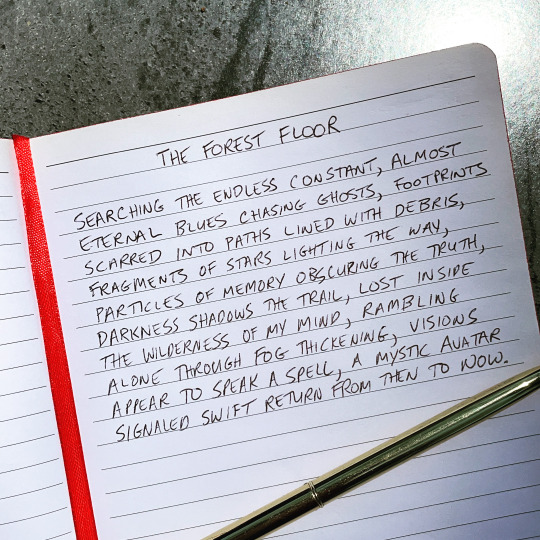 THE FOREST FLOOR
SEARCHING THE ENDLESS CONSTANT, ALMOST
ETERNAL BLUES CHASING GHOSTS, FOOTPRINTS
SCARRED INTO PATHS LINED WITH DEBRIS,
FRAGMENTS OF STARS LIGHTING THE WAY,
PARTICLES OF MEMORY OBSCURING THE TRUTH,
DARKNESS SHADOWS THE TRAIL, LOST INSIDE
THE WILDERNESS OF MY MIND, RAMBLING
ALONE THROUGH FOG THICKENING, VISIONS
APPEAR TO SPEAK A SPELL, A MYSTIC AVATAR
SIGNALED SWIFT RETURN FROM THEN TO NOW.